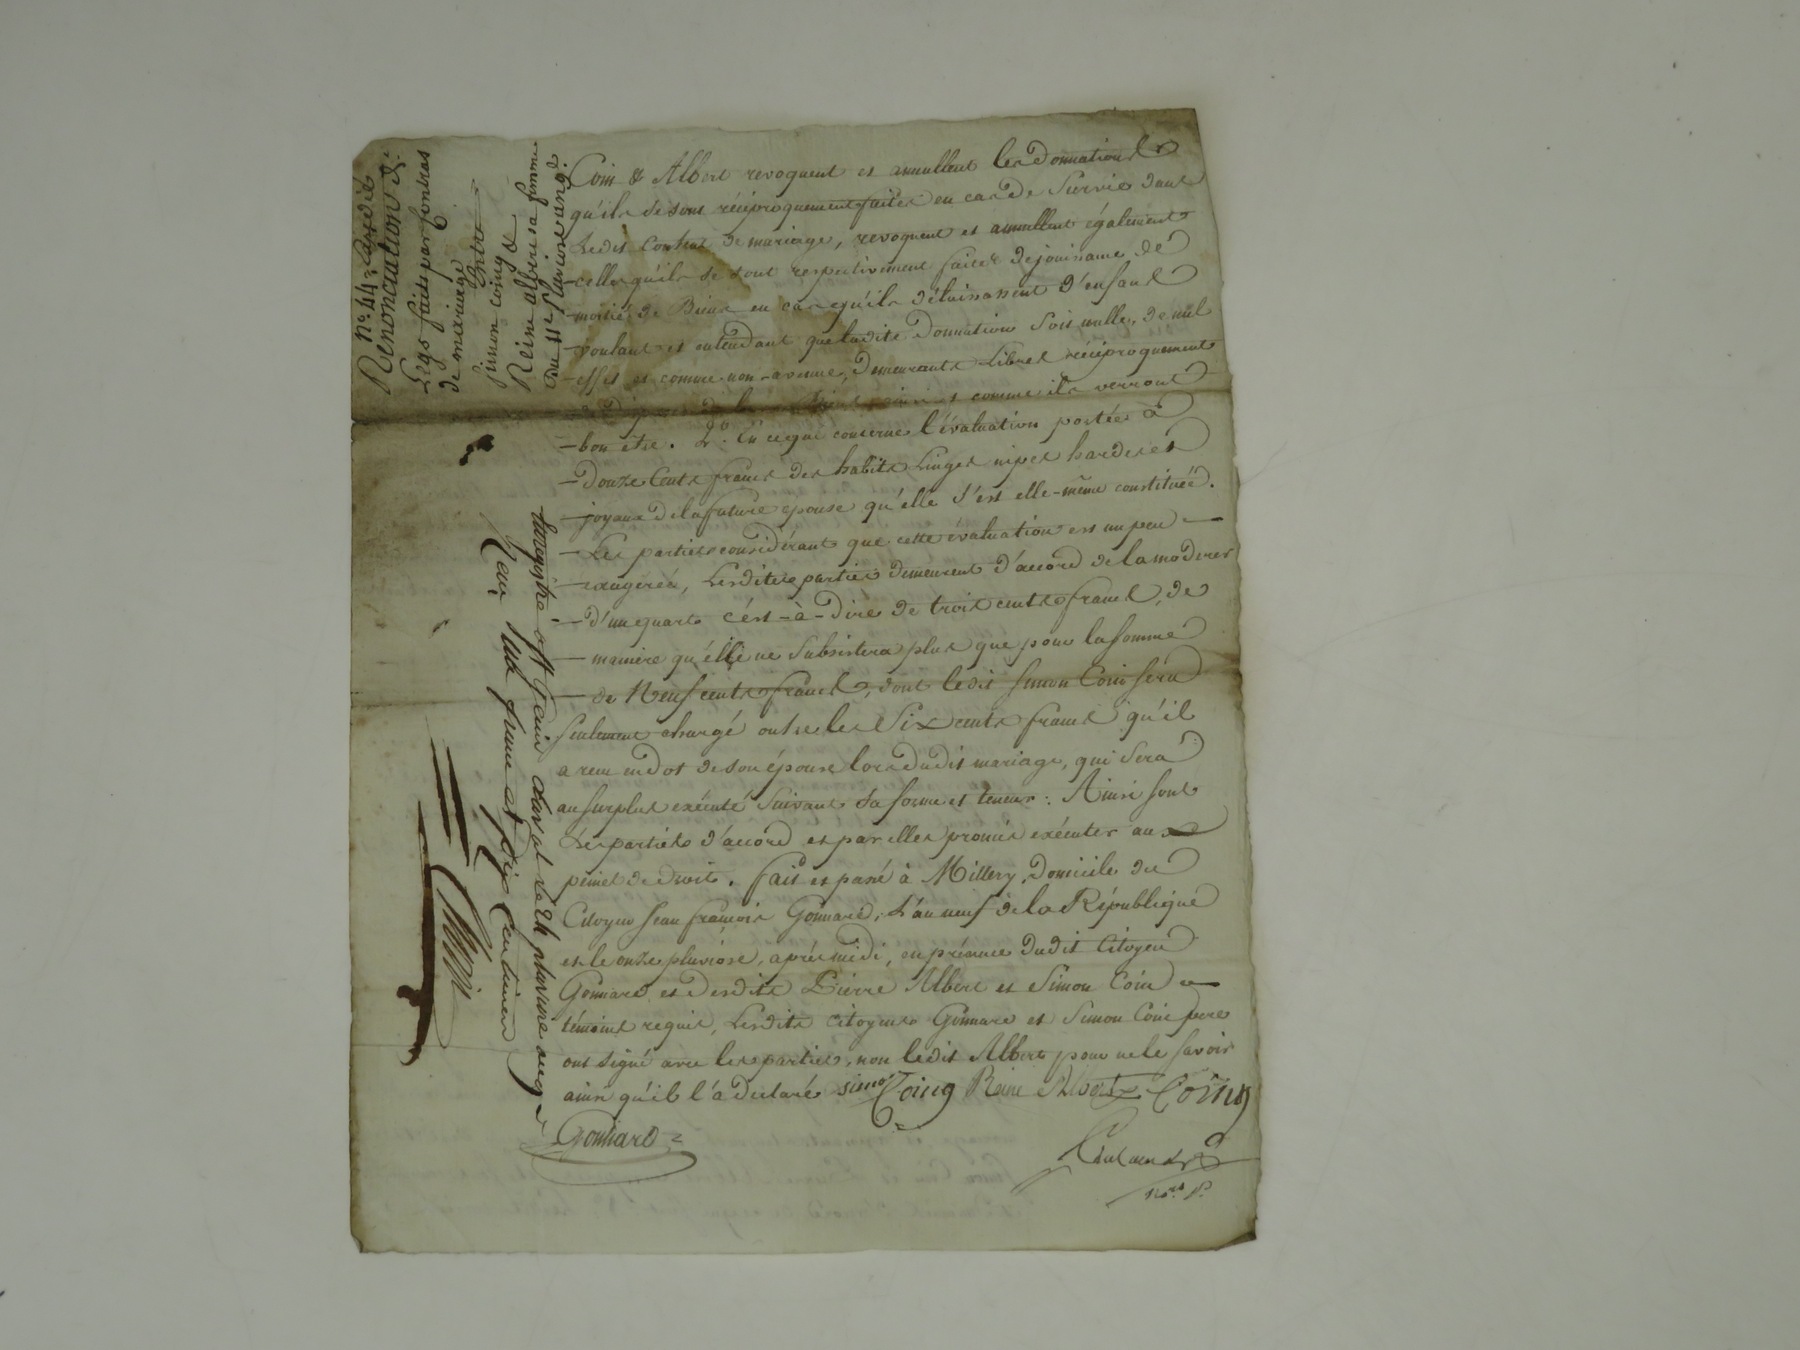 Coin & Albert revoquent et annullent les Donnations
qu'ils se sont réciproquement faites en cas de Survie dans
Ledit Contrat de mariage, revoquent et annullent également
celles qu'ils se sont respectivement faites de jouissance de
moitié de Biens en cas qu'ils délaissassent d'enfant
voulant et entendant que ladite Donnation soit nulle, de nul
effet et comme non-avenue, Demeurants Libres réciproquement
comme ils verront
bon etre. 2.° En ce qui concerne l'évaluation portée à
Douze Cents francs des habits Linges nipes hardes et
joyaux de la future épouse qu'elle s'est elle-même constituée.
Les parties considérant que cette évaluation est un peu
exagérée, Lesdites parties demeurent d'accord de la modérer
d'un quart c'est-à-Dire de trois cents francs, de
manière qu'elle ne Subsistera plus que pour la somme
de Neuf cents francs, dont ledit Simon Coin sera
seulement chargé outre les Six cents francs qu'il
a reçu en Dot de son épouse lors dudit mariage, qui sera
au surplus exécuté suivant sa forme et teneur : Ainsi sont
Les parties d'accord et par elles promis exécuter aux
peines de Droit. fait et passé à Millery, Domicile du
Citoyen Jean françois Gonnard, L'an neuf de la République
et le onze pluviôse, après midi, en présence Dudit Citoyen
Gonnard et Desdits Pierre Albert et Simon Coin
témoins requis, Lesdits citoyens Gonnard et Simon Coin pere
ont signé avec les parties, non ledit Albert pour ne le savoir
ainsi qu'il l'a déclaré simon Coing Reine Albert Coing
Gonnard
N.° 44
Renonciation de
Legs faits par Contras
de mariage
Entre
simon coing &
Reine albert sa femme
Du 11e pluviose an 9e
Enregistré a st Genis Laval le 24 pluviose an 9
Reçu francs et Dix Centimes